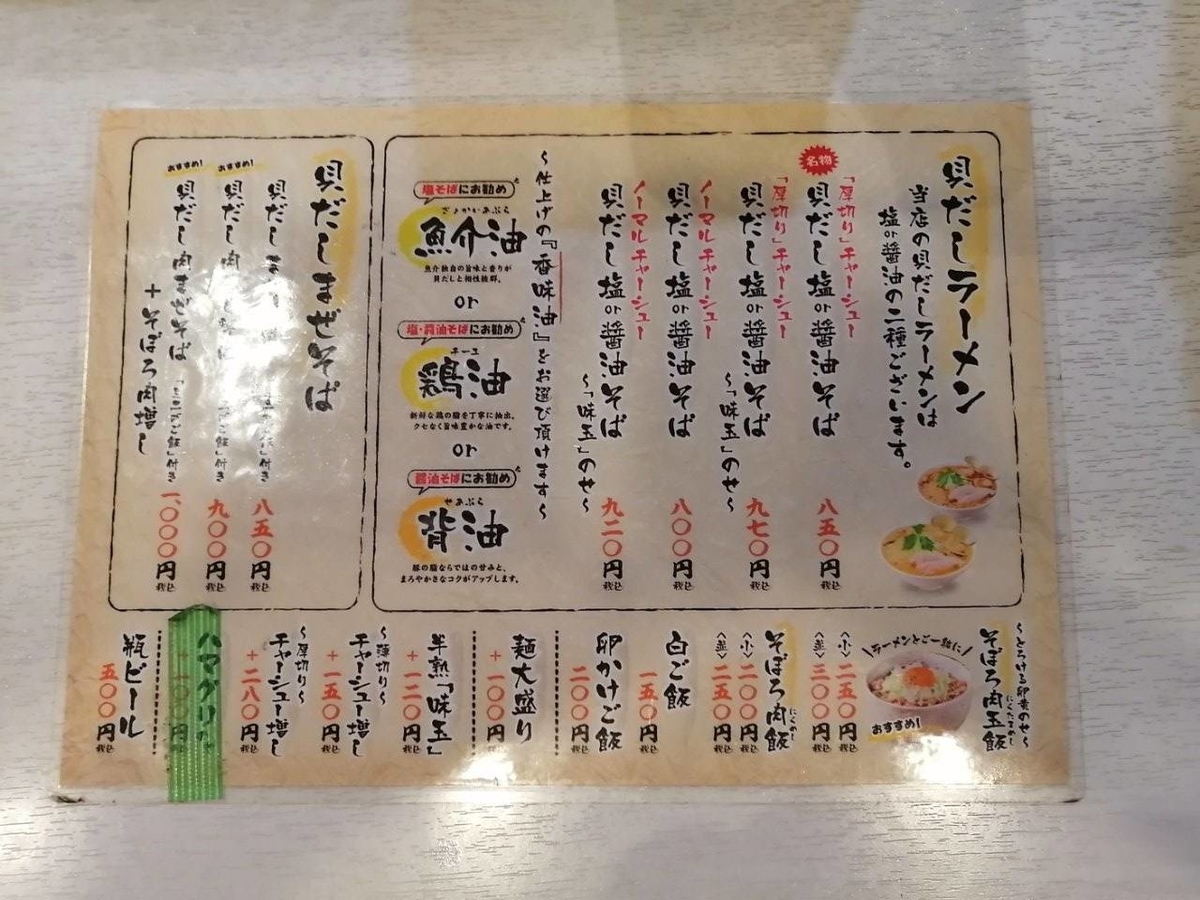 貝だしラーメン
当店の貝だしラーメンは
塩or醤油の二種ございます。
名物
「厚切り」チャーシュー
貝だし塩or醤油そば
八五〇円
税込
「厚切り」チャーシュー
貝だし塩or醤油そば
～「味玉」のせ～
九七〇円
税込
ノーマルチャーシュー
貝だし塩or醤油そば
八〇〇円
税込
ノーマルチャーシュー
貝だし塩or醤油そば
～「味玉」のせ～
九二〇円
税込
～仕上げの『香味油』をお選び頂けます～
塩そばにお勧め
ぎょかいあぶら
魚介油
魚介独自の旨味と香りが
貝だしと相性抜群。
or
塩・醤油そばにお勧め
チーユ
鶏油
新鮮な鶏の脂を丁寧に抽出。
クセなく旨味豊かな油です。
or
醤油そばにお勧め
せあぶら
背油
豚の脂ならではの甘みと、
まろやかさなコクがアップします。
貝だしまぜそば
貝だしま
付き
八五〇円
税込
おすすめ!
貝だし肉
ご飯」付き
九〇〇円
税込
おすすめ!
貝だし肉まぜそば
ご飯」付き
＋そぼろ肉増し
一、〇〇〇円
税込
～とろける卵黄のせ～
そぼろ肉玉飯
にくたまめし
ラーメンとご一緒に
おすすめ!
〈小〉二五〇円
税込
〈並〉三〇〇円
税込
そぼろ肉飯
にくめし
〈小〉二〇〇円
税込
〈並〉二五〇円
税込
白ご飯
一五〇円
税込
卵かけご飯
二〇〇円
税込
麺大盛り
＋一〇〇円
税込
半熟「味玉」
＋一二〇円
税込
～薄切り～
チャーシュー増し
＋一五〇円
税込
～厚切り～
チャーシュー増し
＋二八〇円
税込
ハマグリ
瓶ビール
五〇〇円
税込